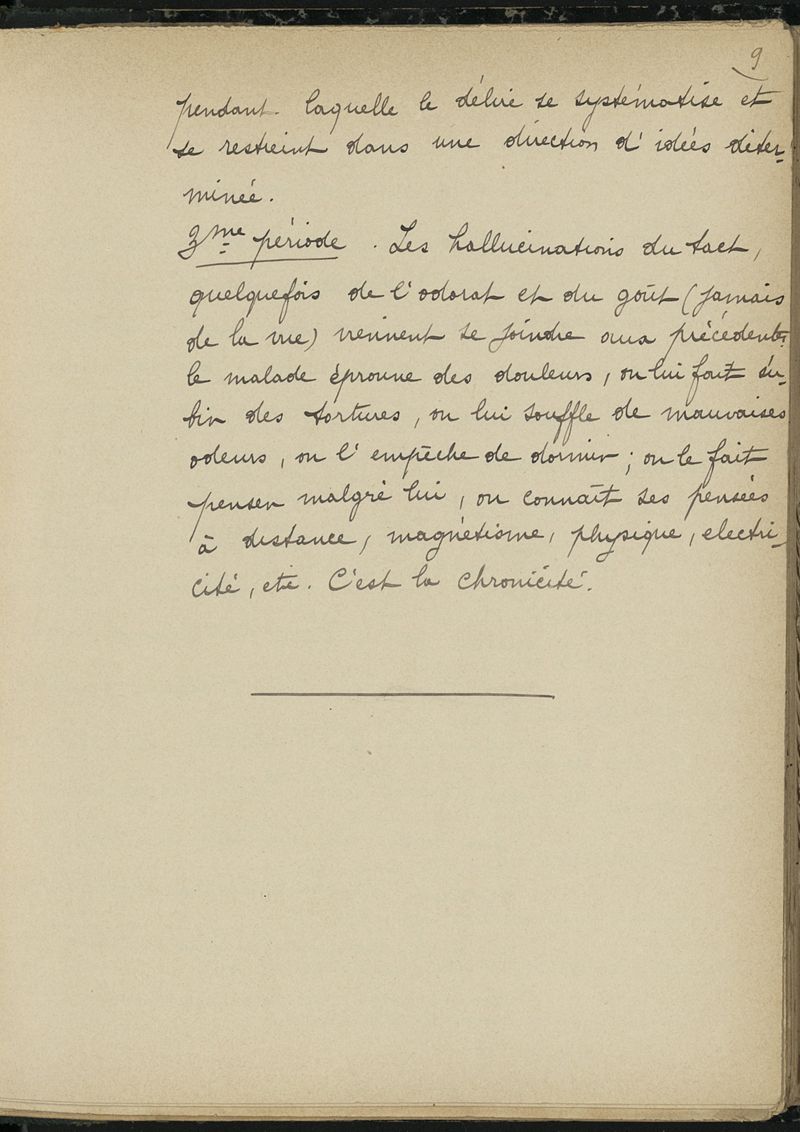 9
pendant laquelle le délire se systématise et
se restreint dans une direction d'idées déter-
minée.
3me période. Les hallucinations du tact,
quelquefois de l'odorat et du goût (jamais
de la vue) viennent se joindre aux précédentes
le malade éprouve des douleurs, on lui fait su-
bir des tortures, on lui souffle de mauvaises
odeurs, on l'empêche de dormir; on le fait
penser malgré lui, on connaît ses pensées
à distance, magnétisme, physique, electri-
cité, etc. C'est la chronicité.